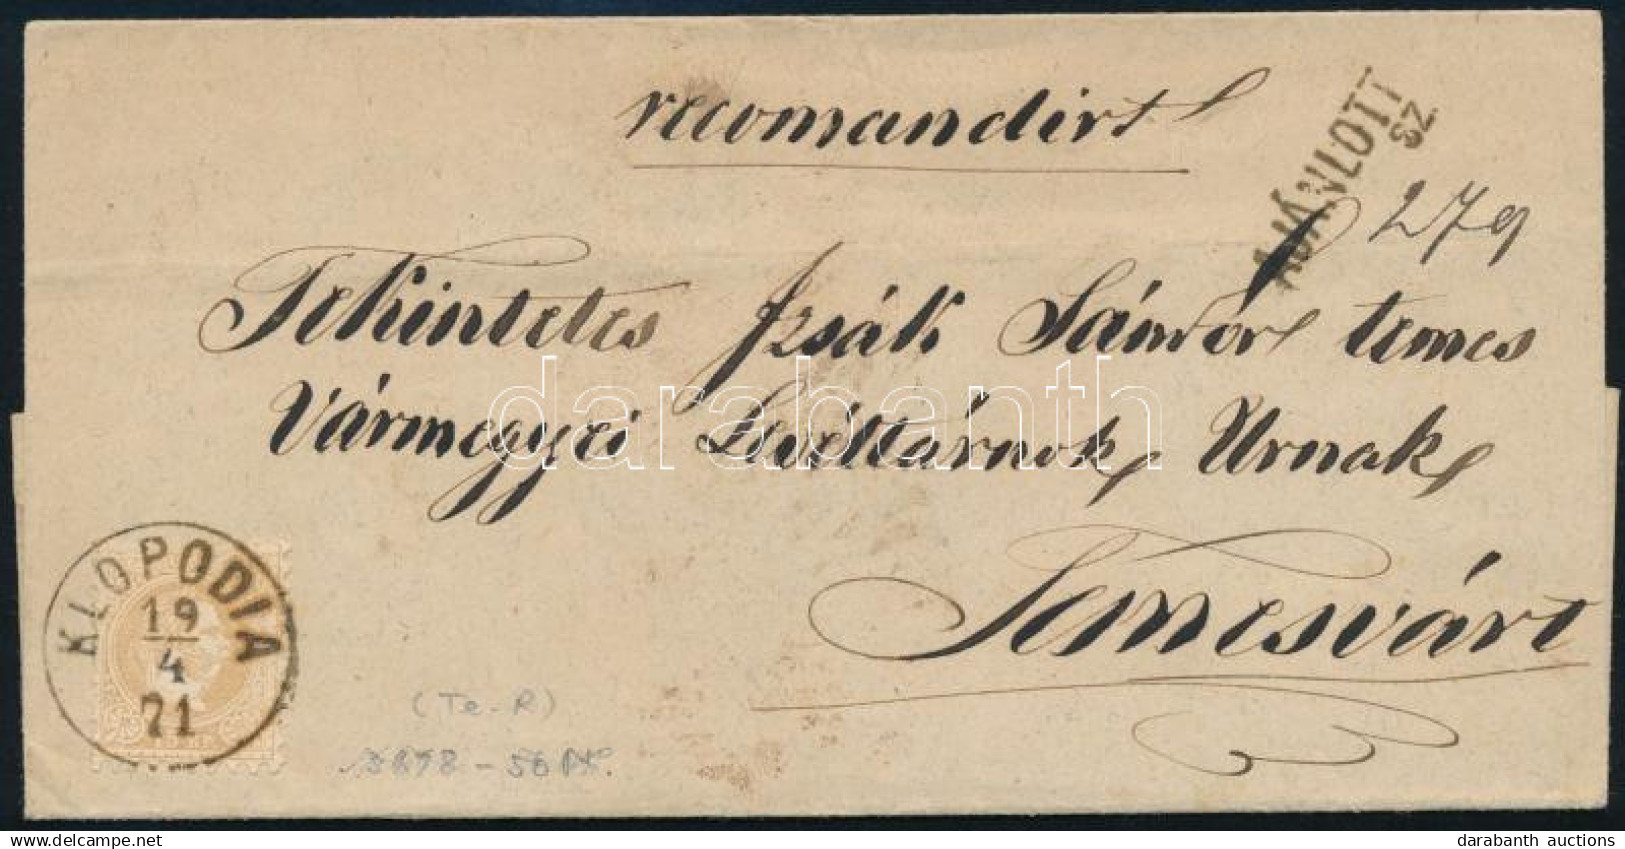 recomandirt
AJÁNLOTT
SZ.
279
Tekintetes Izsák Sándor temes
Vármegyei Levéltárnok Urnak
Temesvárt
KLOPODIA
19
4
71
(Te-R)
darabanth
darabanth auctions
www.delcampe.net